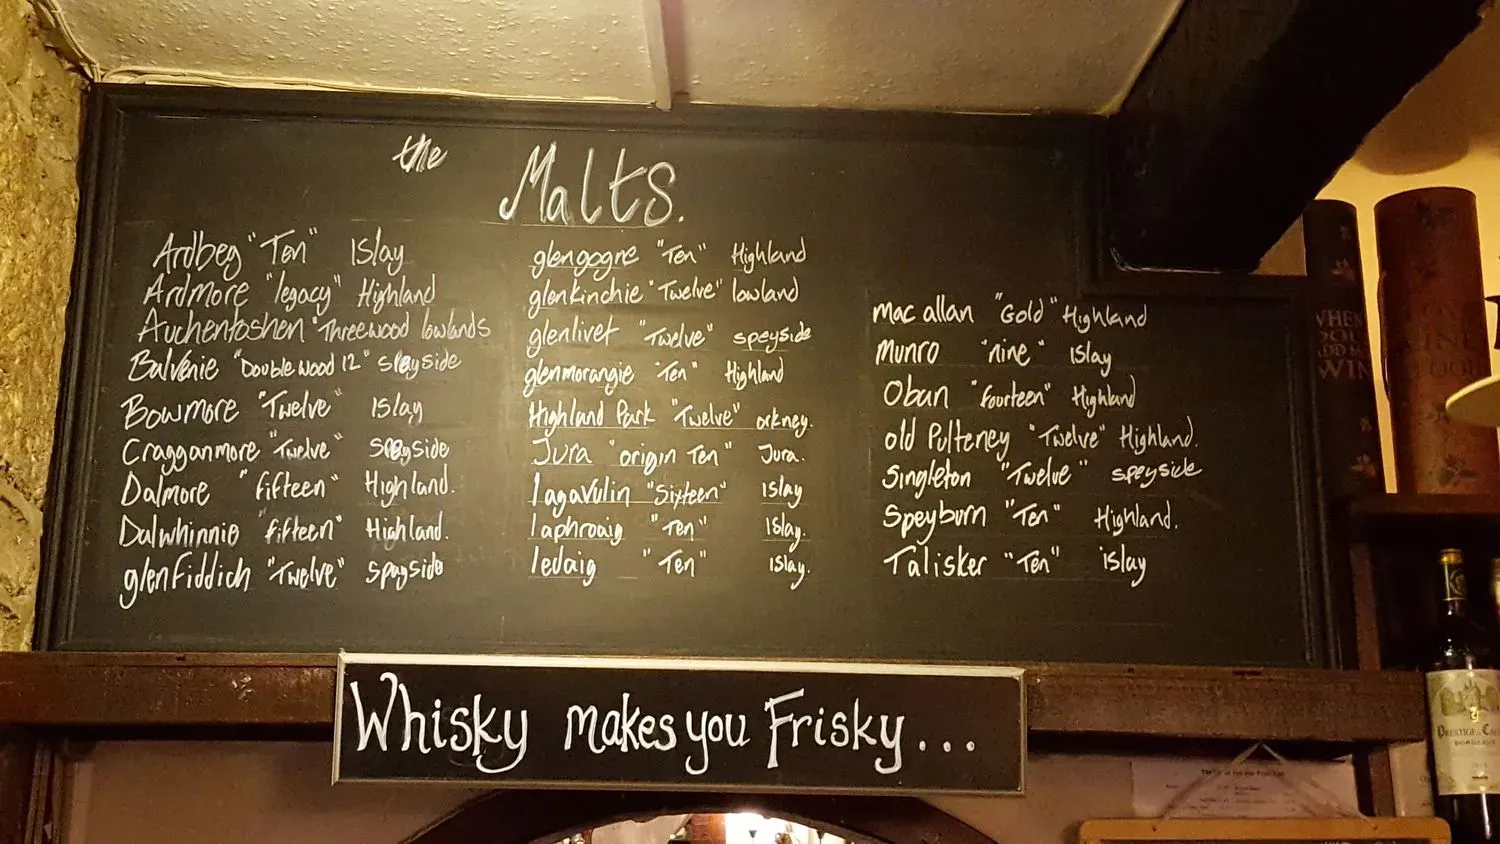 the Malts.
Ardbeg "Ten" Islay
Ardmore "legacy" Highland
Auchentoshen "Threewood lowlands
Balvenie "Double wood 12" speyside
Bowmore "Twelve" Islay
Cragganmore "Twelve" Speyside
Dalmore "fifteen" Highland.
Dalwhinnie "fifteen" Highland.
glenfiddich "Twelve" Speyside
glengogne "Ten" Highland
glenkinchie "Twelve" lowland
glenlivet "Twelve" speyside
glenmorangie "Ten" Highland
Highland Park "Twelve" orkney.
Jura "origin Ten" Jura.
lagavulin "Sixteen" Islay
laphroaig "Ten" Islay.
ledaig "Ten" Islay.
mac allan "Gold" Highland
munro "nine" Islay
Oban "fourteen" Highland
old Pulteney "Twelve" Highland.
Singleton "Twelve" speyside
Speyburn "Ten" Highland.
Talisker "Ten" islay
Whisky makes you Frisky...
WHEN
YOU
ADD
WIN
WINE
YOUR
BORDEAUX